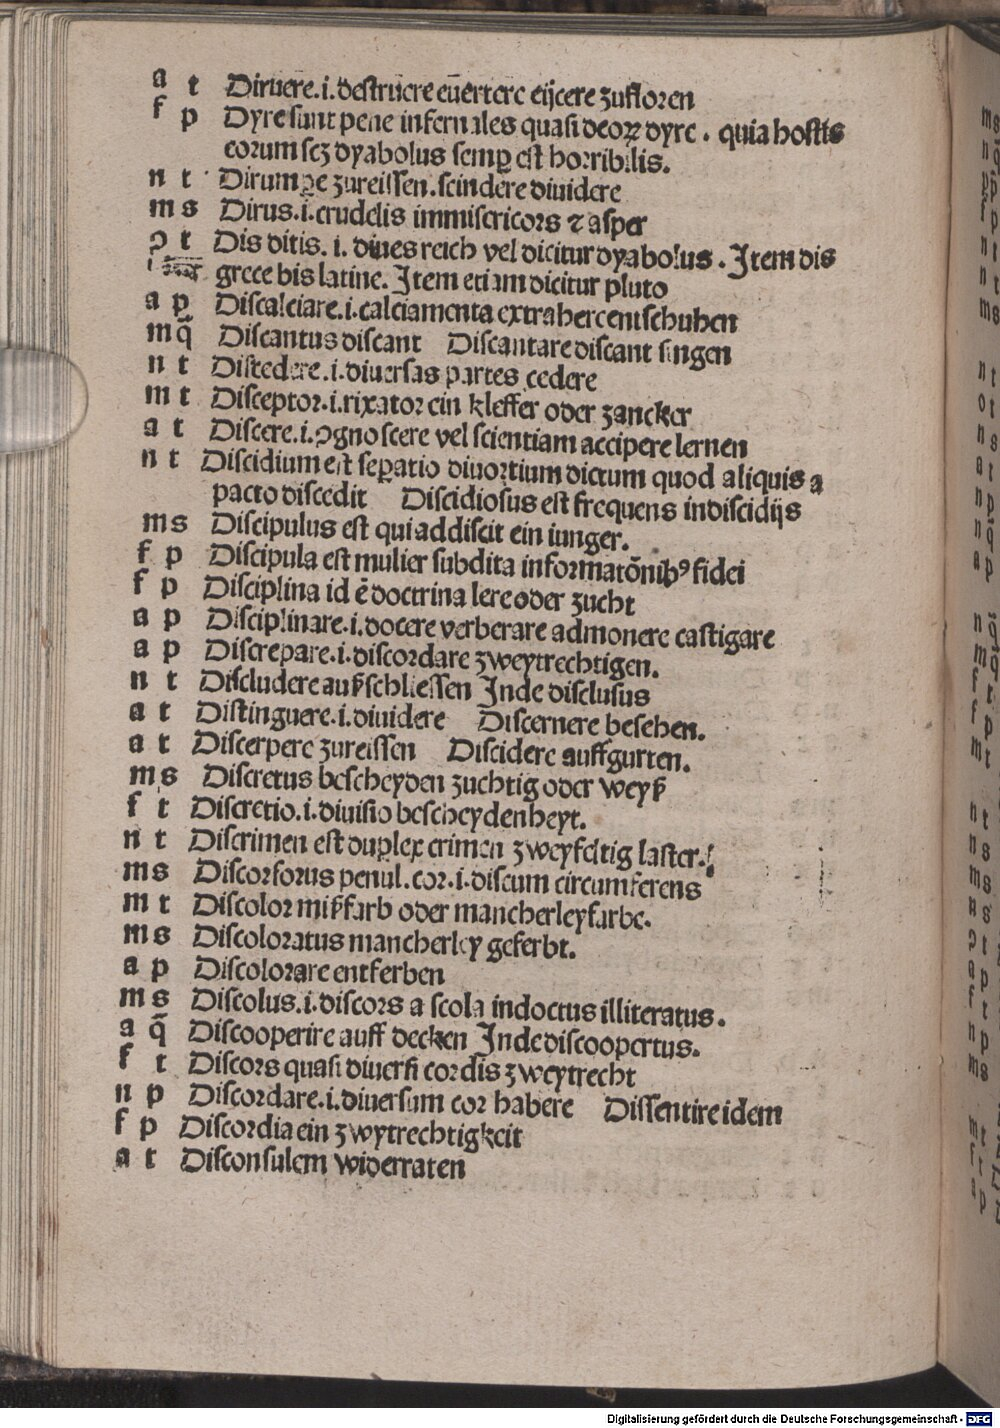 a t Diruere.i.destruere eűertere eijcere zustoren
f p Dyre sunt pene infernales quasi deoꝝ dyre . quia hostis
eorum sez dyabolus semꝑ est horribilis.
n t Dirumꝑe zureissen.scindere diuidere
m s Dirus.i.crudelis immisericors ⁊ asper
ꝯ t Dis ditis. i. diues reich vel dicitur dyabolus . Item dis
grece bis latine. Item etiam dicitur pluto
a p Discalciare.i.calciamenta extrahere entschuhen
m q̄ Discantus discant Discantare discant singen
n t Discedere.i.diuersas partes cedere
m t Disceptor.i.rixator ein kleffer oder zancker
a t Discere.i.ꝯgnoscere vel scientiam accipere lernen
n t Discidium est seꝑatio diuortium dictum quod aliquis a
pacto discedit Discidiosus est frequens in discidijs
m s Discipulus est qui addiscit ein iunger.
f p Discipula est mulier subdita informatōnibꝰ fidei
f p Disciplina id ē doctrina lere oder zucht
a p Disciplinare.i.docere verberare admonere castigare
a p Discrepare.i.discordare zweytrechtigen.
n t Discludere außschliessen Inde disclusus
a t Distinguere.i.diuidere Discernere besehen.
a t Discerpere zureissen Discidere auffgurten.
m s Discretus bescheyden zuchtig oder weyß
f t Discretio.i.diuisio bescheydenheyt.
n t Discrimen est duplex crimen zweyfeltig laster.
m s Discorforus penul.cor.i.discum circumferens
m t Discolor mißfarb oder mancherley farbe.
m s Discoloratus mancherley geferbt.
a p Discolorare entferben
m s Discolus.i.discors a scola indoctus illiteratus.
a q̄ Discooperire auff decken Inde discoopertus.
f t Discors quasi diuersi cordis zweytrecht
n p Discordare.i.diuersum cor habere Dissentire idem
f p Discordia ein zwytrechtigkeit
a t Disconsulem widerraten
Digitalisierung gefördert durch die Deutsche Forschungsgemeinschaft - DFG